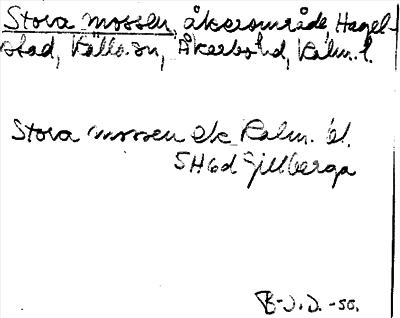 Stora mossen, åkerområde, Hagel-
stad, Källa sn, Åkerbo hd, Kalm. l.
Stora mossen ek Kalm. bl.
5H6d Gillberga
B-J.D. -50.